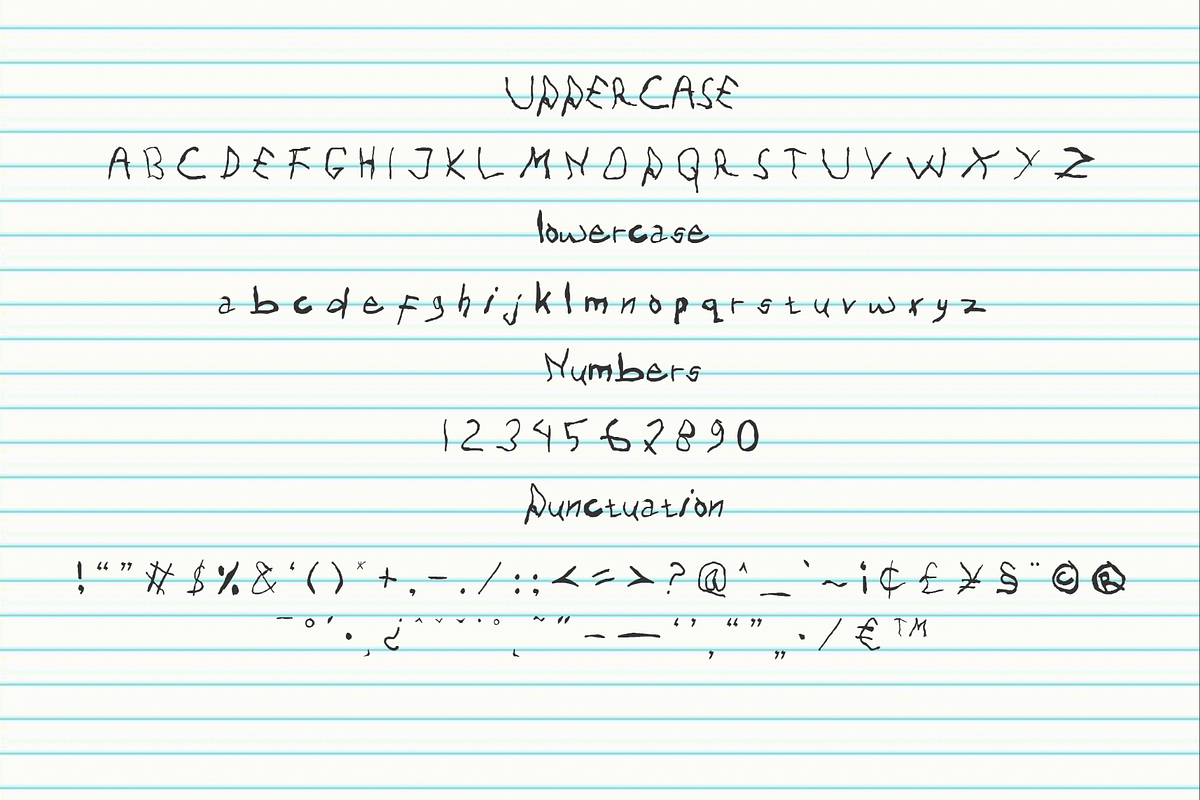 UPPERCASE
A B C D E F G H I J K L M N O P Q R S T U V W X Y Z
lowercase
a b c d e f g h i j k l m n o p q r s t u v w x y z
Numbers
1 2 3 4 5 6 7 8 9 0
Punctuation
! “ ” # $ % & ‘ ( ) * + , - . / : ; < = > ? @ ^ _ ` ~ ¡ ¢ £ ¥ § ¨ © ®
¯ ° ´ · ¸ ¿ ˆ ˇ ˘ ˙ ˚ ˛ ˜ ˝ – — ‘ ’ ‚ “ ” „ · / € ™